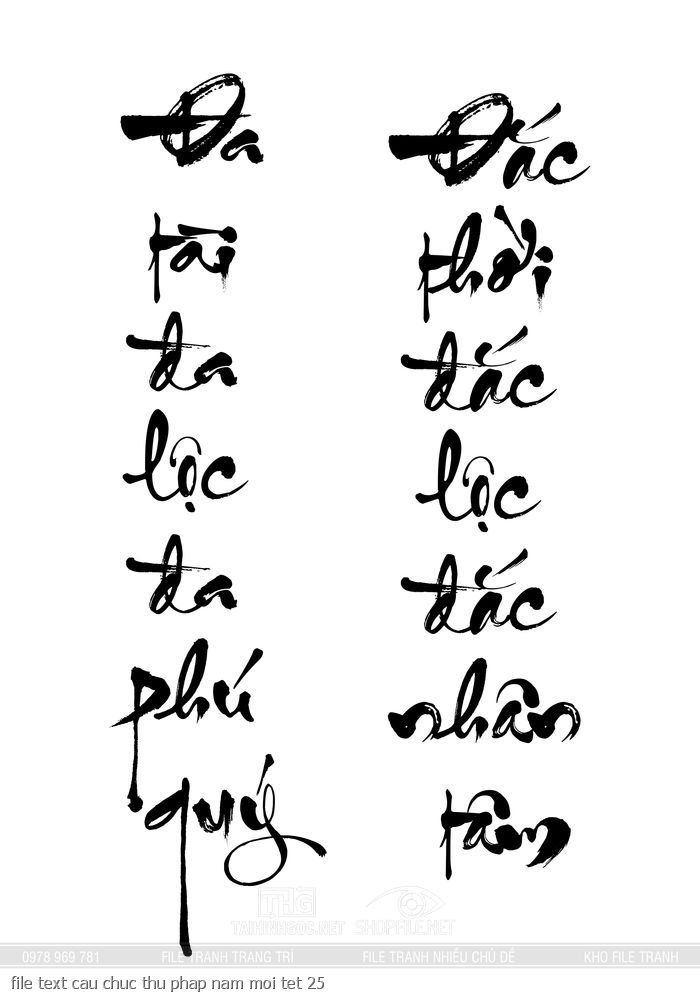 Đa
tài
đa
lộc
đa
phú
quý
Đắc
thời
đắc
lộc
đắc
nhân
tâm
THG
TAIHINHGOC.NET
SHOPFILE.NET
0978 969 781
FILE TRANH TRANG TRÍ
FILE TRANH NHIỀU CHỦ ĐỀ
KHO FILE TRANH
file text cau chuc thu phap nam moi tet 25